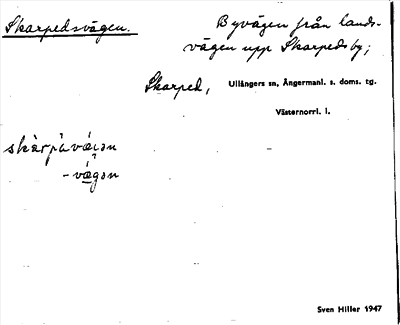 Skarpedsvägen.
Byvägen från lands-
vägen upp Skarpedsby;
Skarped, Ullångers sn, Ångermanl. s. doms. tg.
Västernorrl. l.
-vägən
Sven Hiller 1947